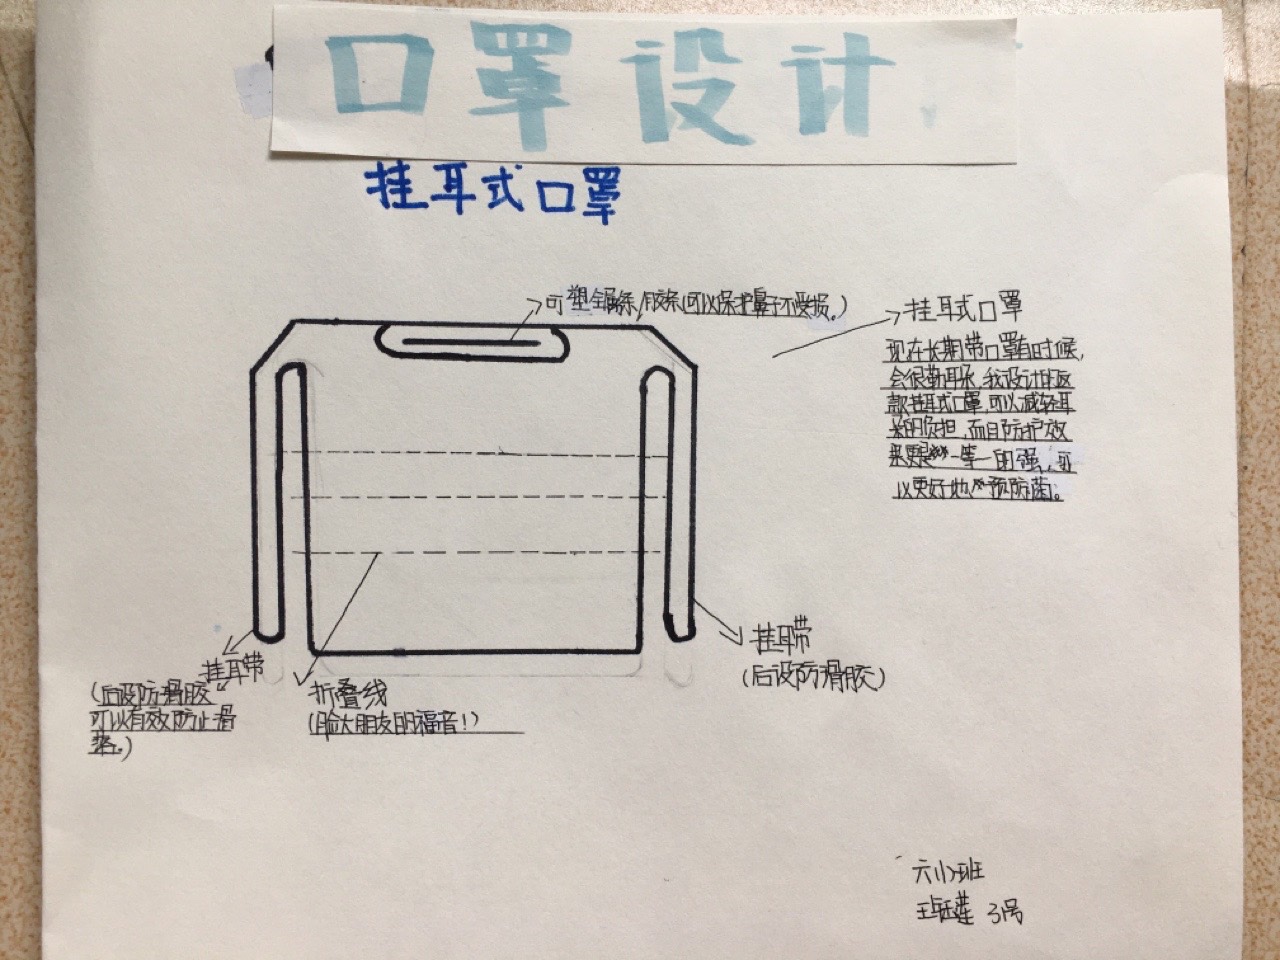 口罩设计
挂耳式口罩
可塑金属条/胶条(可以保护鼻子不受损。)
挂耳式口罩
现在长期带口罩有时候,
会很勒耳朵,我设计的这
款挂耳式口罩,可以减轻耳
朵的负担,而且防护效
果更是一等一的强,可
以更好地预防菌。
挂耳带
(后设防滑胶
可以有效防止滑
落。)
折叠线
(脸大朋友的福音!)
挂耳带
(后设防滑胶)
班
3号